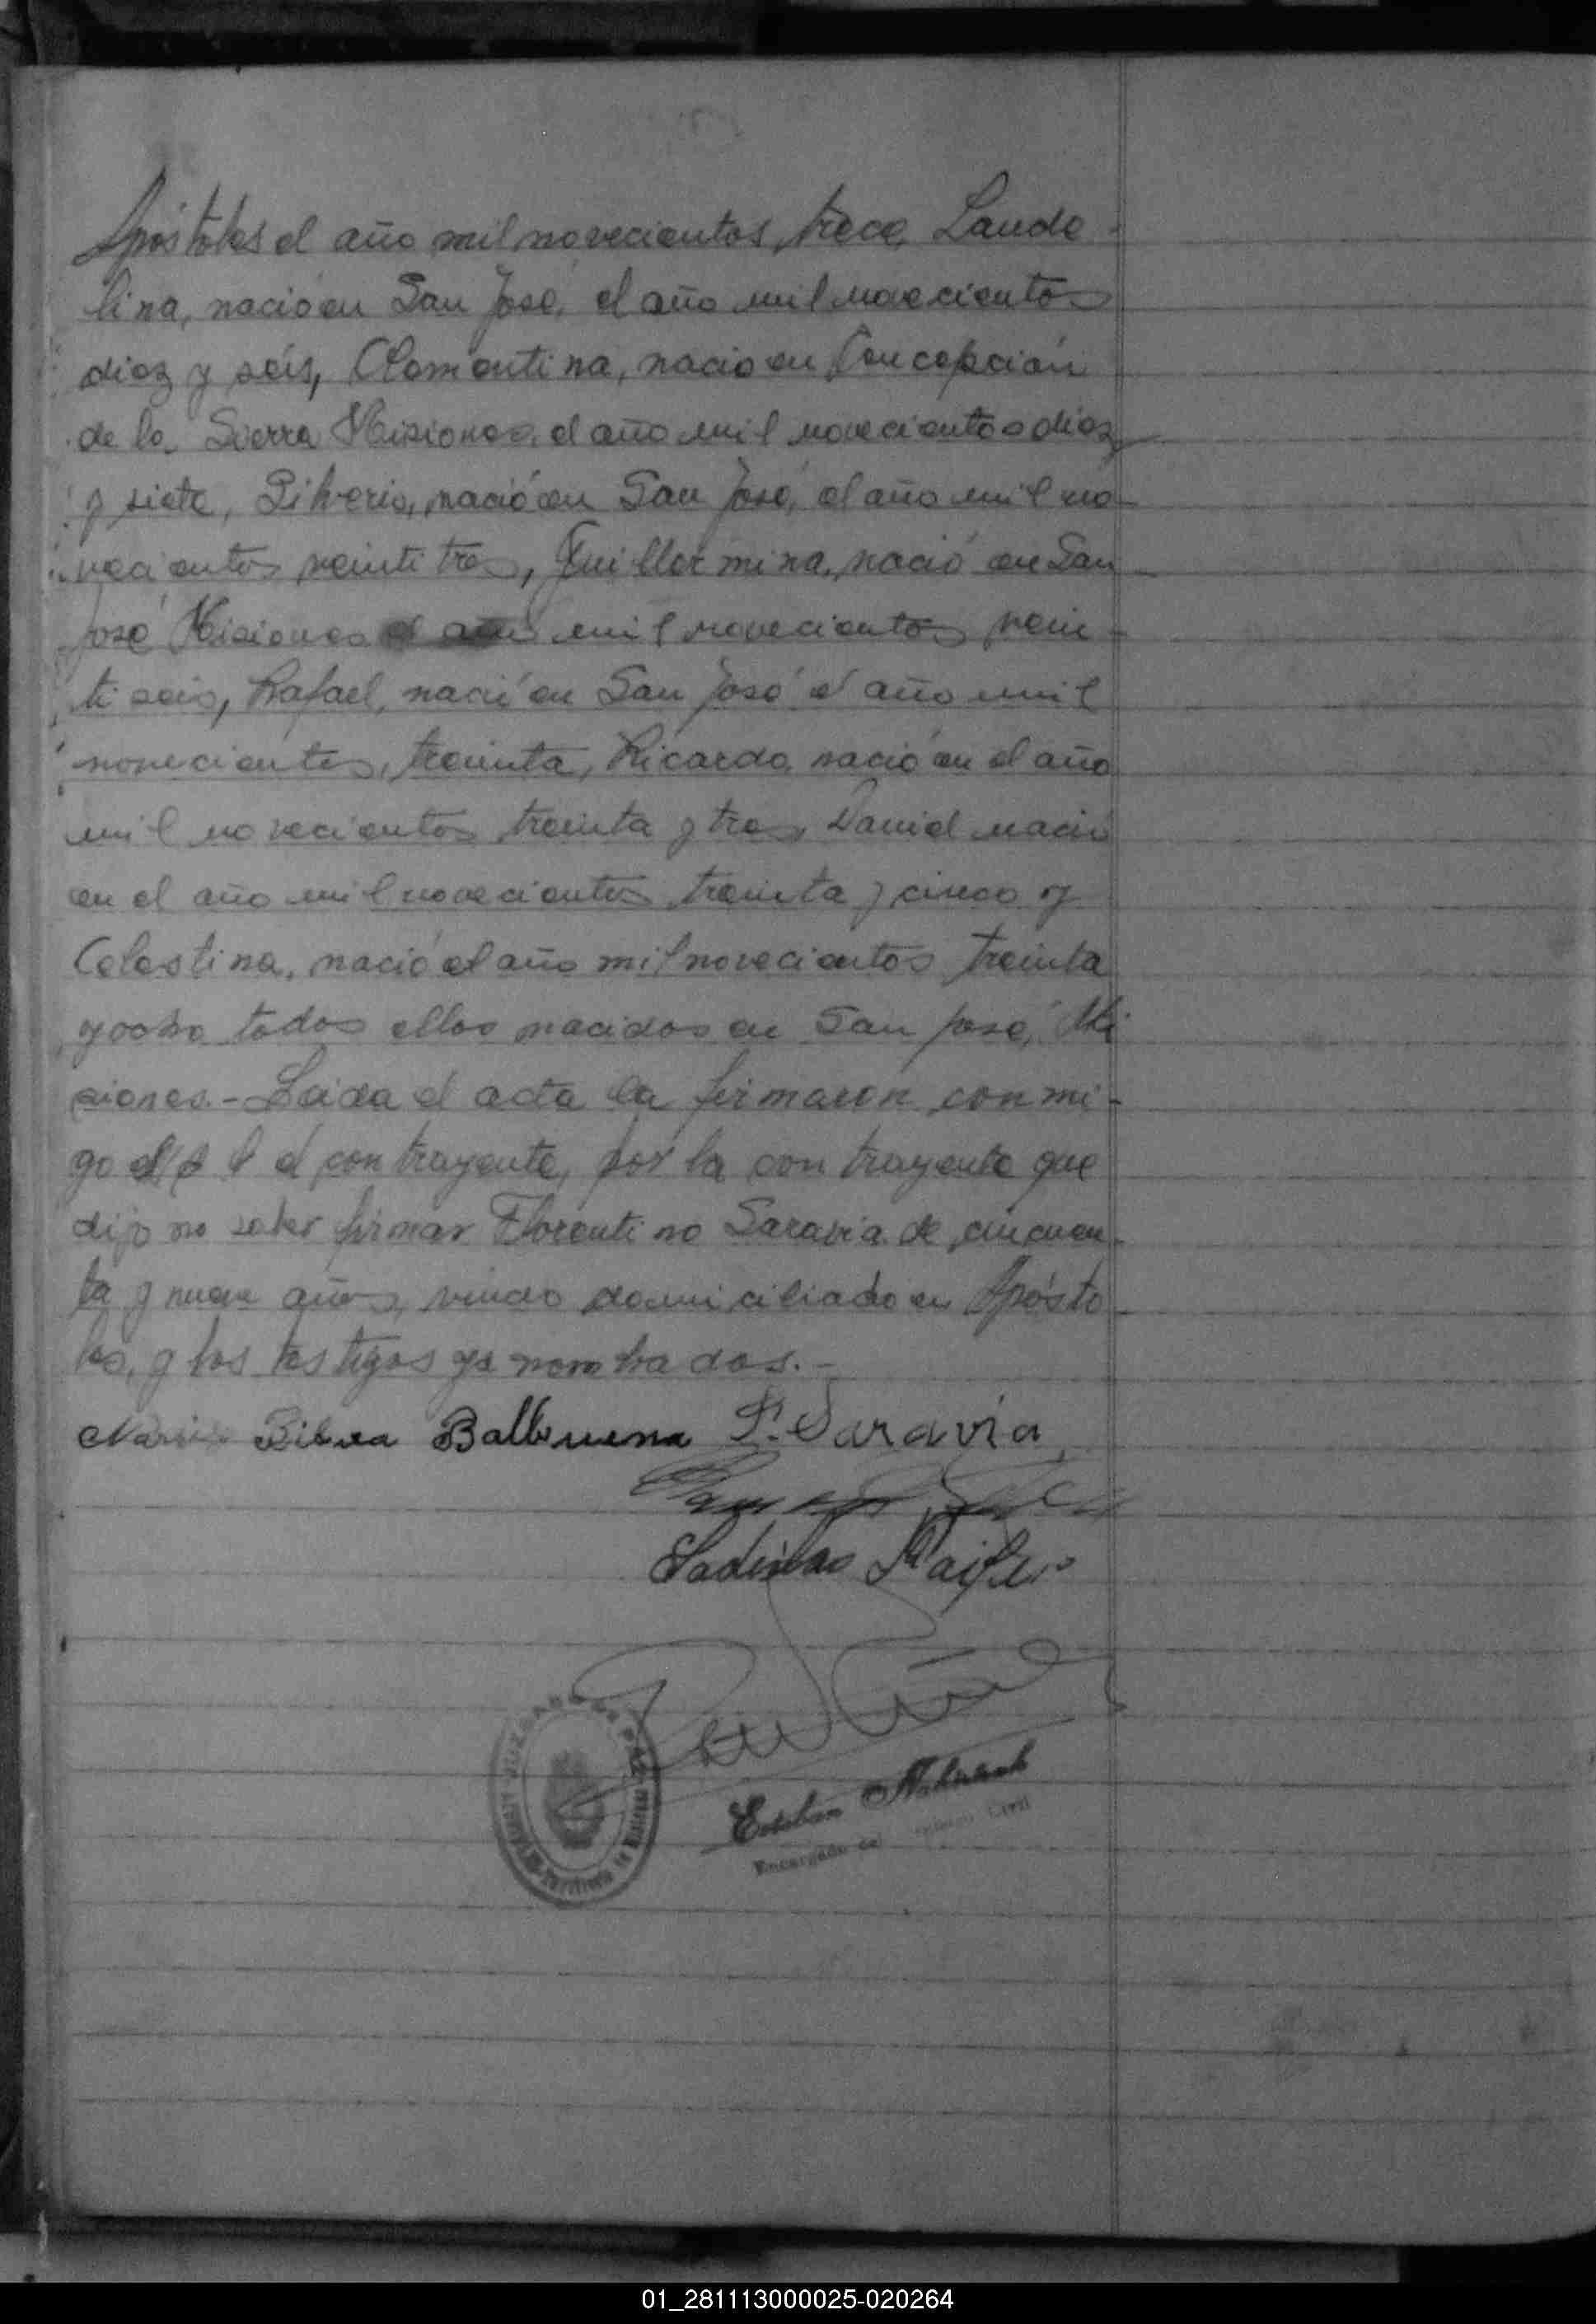 Apóstoles el año mil novecientos, trece, Laude
lina, nació en San José, el año mil novecientos
diez y seis, Clementina, nacio en Concepción
de la Sierra Misiones, el año mil novecientos diez
y siete, Silverio, nació en San José, el año mil no-
vecientos veinti tres, Guillermina, nació en San
José Misiones el año mil novecientos vein-
ti seis, Rafael, nació en San José el año mil
novecientos, treinta, Ricardo, nació en el año
mil novecientos treinta y tres, Daniel nació
en el año mil novecientos treinta y cinco y
Celestina, nació el año mil novecientos treinta
y ocho todos ellos nacidos en San José, Mi
siones.- Leida el acta la firmaron conmi-
go el contrayente, por la contrayente que
dijo no saber firmar Florentino Saravia de cincuen-
ta y nueve años, viudo domiciliado en Apósto
les, y los testigos ya nombrados.-
Balbuena F. Saravia
Ladislao
JUZGADO DE PAZ
Esteban
Encargado del Civil
01_281113000025-020264